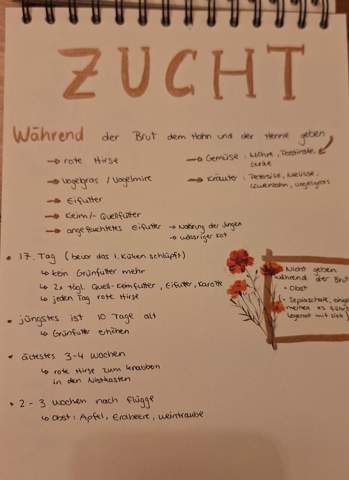 ZUCHT
Während der Brut dem Hahn und der Henne geben
→ rote Hirse
→ Vogelgras / Vogelmire
→ Eifutter
→ Keim/- Quellfutter
→ angefeuchtetes Eifutter → Nahrung der Jungen
→ wässriger Kot
→ Gemüse: Möhre, Pastinake,
Gurke
→ Kräuter: Petersilie, Melisse,
Löwenzahn, Vogelgras
• 17. Tag (bevor das 1. Küken schlüpft)
↳ kein Grünfutter mehr
↳ 2x tägl. Quell-Eifutter, Karotte
↳ jeden Tag rote Hirse
• jüngstes ist 10 Tage alt
↳ Grünfutter erhöhen
• ältestes 3-4 Wochen
↳ rote Hirse zum knabben
in den Nistkasten
• 2 - 3 Wochen nach flügge
↳ Obst: Apfel, Erdbeere, Weintraube
Nicht geben
während der Brut
• Obst
• Sepiaschale,